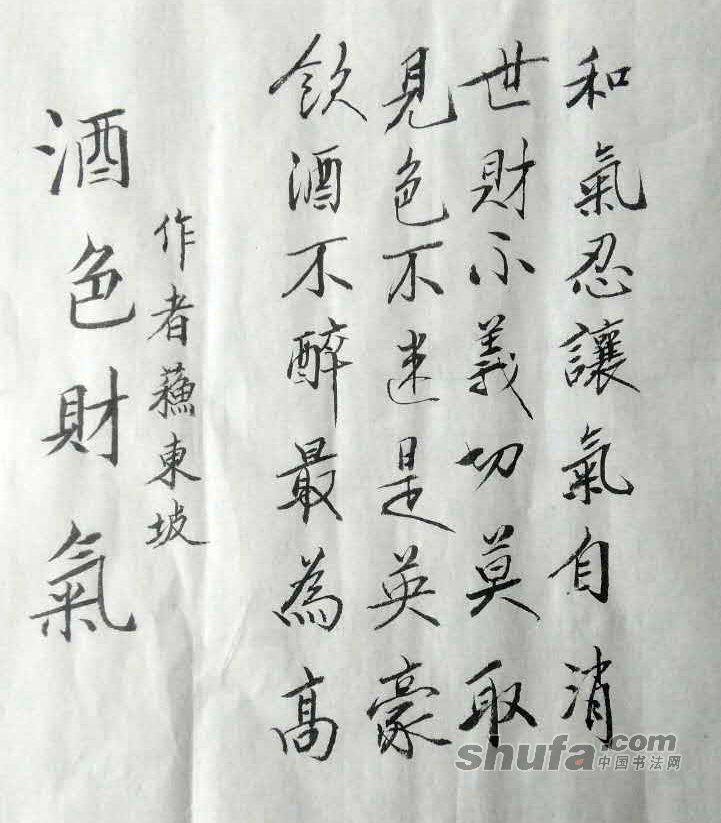 酒色財氣
作者蘓東坡
飲酒不醉最為高
見色不迷是英豪
世財不義切莫取
和氣忍讓氣自消
shufa.com
中国书法网